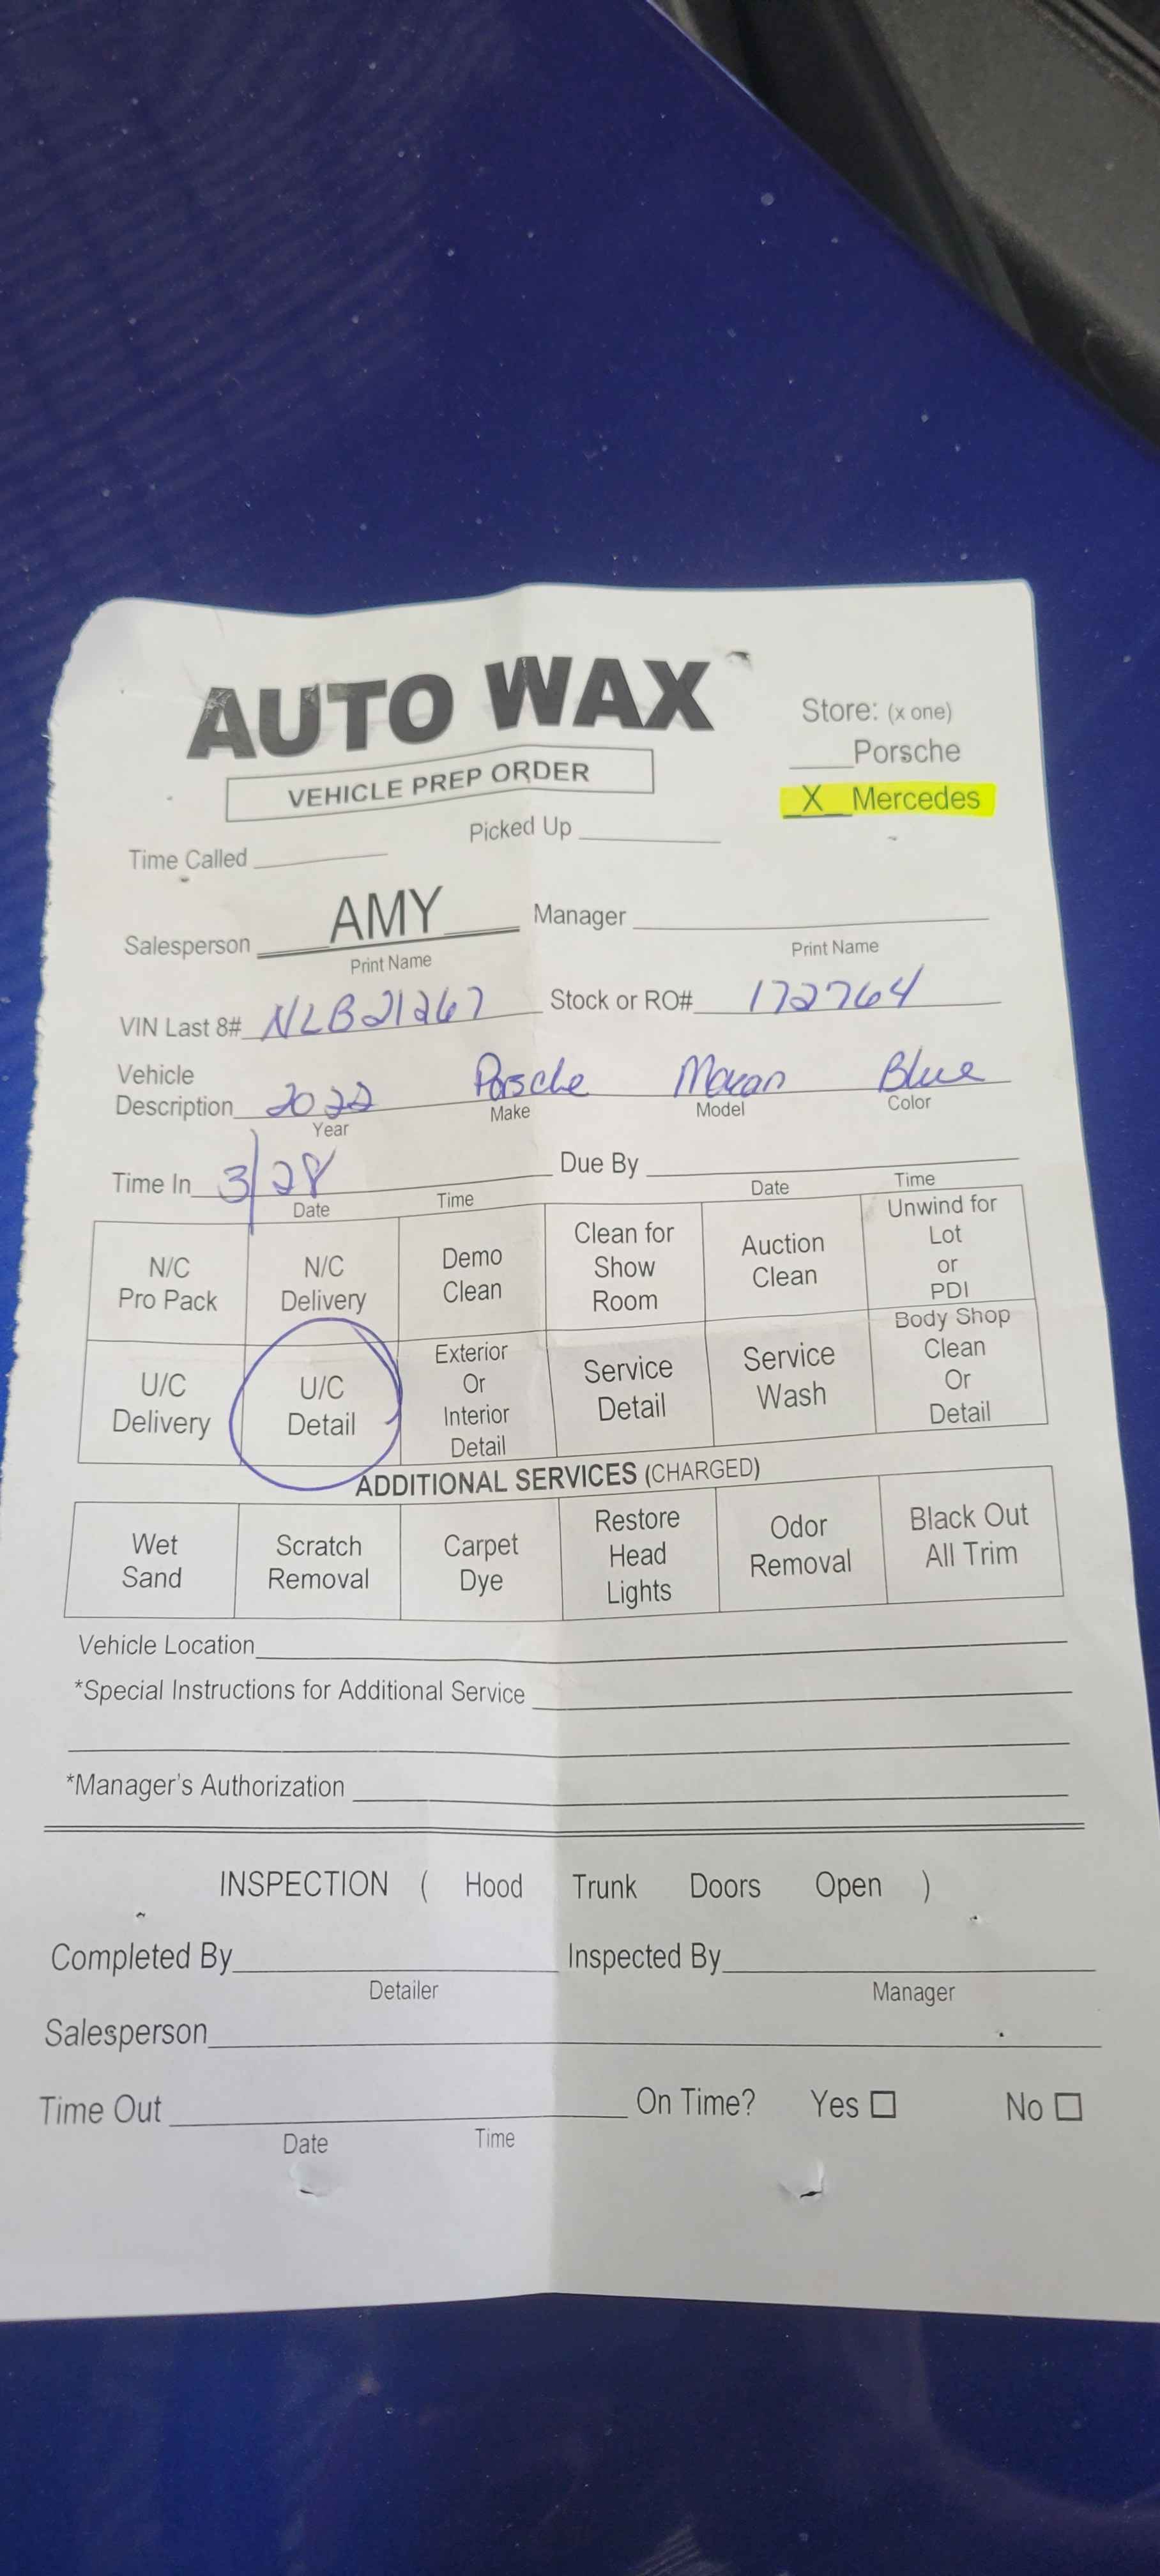 AUTO WAX
VEHICLE PREP ORDER
Store: (x one)
____Porsche
_X_ Mercedes
Time Called ________ Picked Up ________
Salesperson ____AMY____ Manager ________
Print Name Print Name
VIN Last 8# NLB21267 Stock or RO# 172764
Vehicle
Description 2022 Porsche Macan Blue
Year Make Model Color
Time In 3/28 Due By ________
Date Time Date Time
N/C Pro Pack
N/C Delivery
Demo Clean
Clean for Show Room
Auction Clean
Unwind for Lot or PDI
U/C Delivery
U/C Detail
Exterior Or Interior Detail
Service Detail
Service Wash
Body Shop Clean Or Detail
ADDITIONAL SERVICES (CHARGED)
Wet Sand
Scratch Removal
Carpet Dye
Restore Head Lights
Odor Removal
Black Out All Trim
Vehicle Location________
*Special Instructions for Additional Service ________
*Manager's Authorization ________
INSPECTION ( Hood Trunk Doors Open )
Completed By________ Inspected By________
Detailer Manager
Salesperson________
Time Out ________ On Time? Yes ☐ No ☐
Date Time